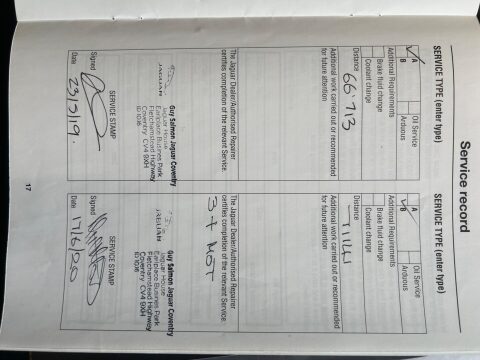 Service record
SERVICE TYPE (enter type)
A
Oil Service
B
Arduous
Additional Requirements
Brake fluid change
Coolant change
Distance 66713
Additional work carried out or recommended
for future attention
The Jaguar Dealer/Authorised Repairer
certifies completion of the relevant Service.
JAGUAR
Guy Salmon Jaguar Coventry
Jaguar House
Fairplace Business Park
Fletchamstead Highway
Coventry CV4 9XH
SERVICE STAMP
Signed
Date 23/5/19.
SERVICE TYPE (enter type)
A
Oil Service
B
Arduous
Additional Requirements
Brake fluid change
Coolant change
Distance
Additional work carried out or recommended
for future attention
The Jaguar Dealer/Authorised Repairer
certifies completion of the relevant Service.
MOT
JAGUAR
Guy Salmon Jaguar Coventry
Jaguar House
Fairplace Business Park
Fletchamstead Highway
Coventry CV4 9XH
SERVICE STAMP
Signed
Date 17/6/20
17